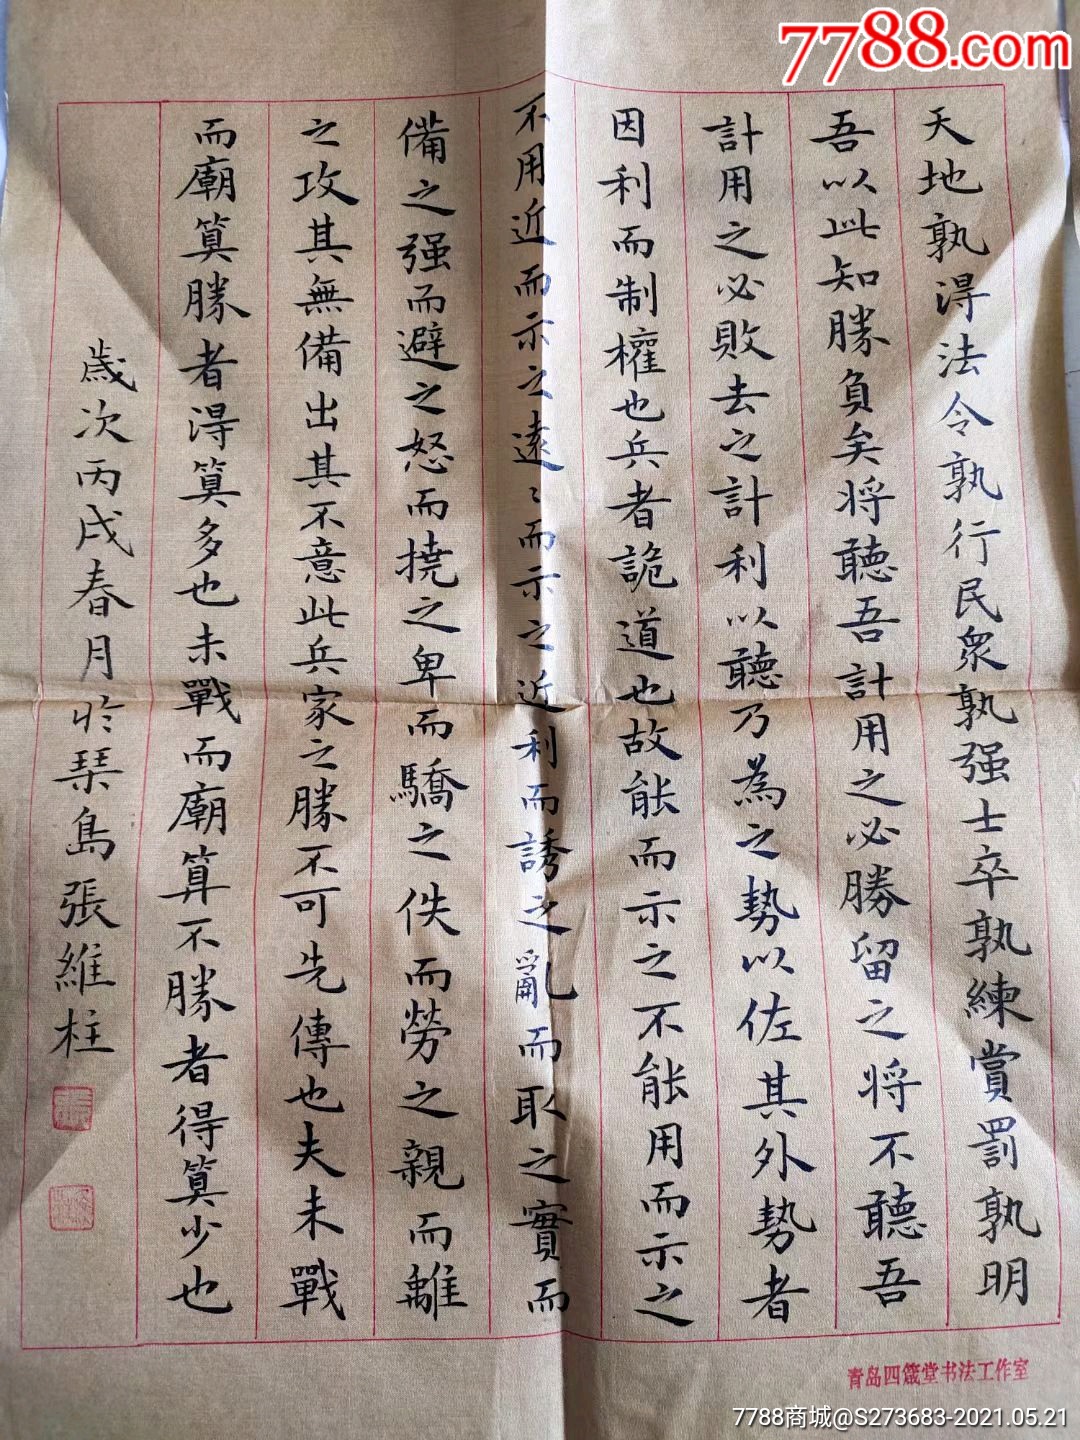 7788.com
天地孰淂法令孰行民衆孰强士卒孰練賞罰孰明
吾以此知勝負矣将聽吾計用之必勝留之将不聽吾
計用之必敗去之計利以聽乃為之勢以佐其外勢者
因利而制權也兵者詭道也故能而示之不能用而示之
不用近而示之遠〻而示之近利而誘之亂而取之實而
備之强而避之怒而撓之卑而驕之佚而勞之親而離
之攻其無備出其不意此兵家之勝不可先傳也夫未戰
而廟算勝者淂算多也未戰而廟算不勝者得算少也
歲次丙戌春月於琹島張維柱
青岛四箴堂书法工作室
7788商城@S273683-2021.05.21